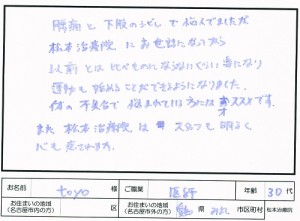 腰痛と下肢のシビレで悩んでましたが
松本治療院にお世話になってから
以前とは比べものにならないくらい楽になり
運動も始めることができるようになりました。
体の不具合で悩まれている方には オススメです。
また 松本治療院は スタッフも明るく
心も癒されます。
お名前 toyo 様 ご職業 医師 年齢 30代
お住まいの地域（名古屋市内の方） 区 お住まいの地域（名古屋市外の方） 県 市区町村 松本治療院